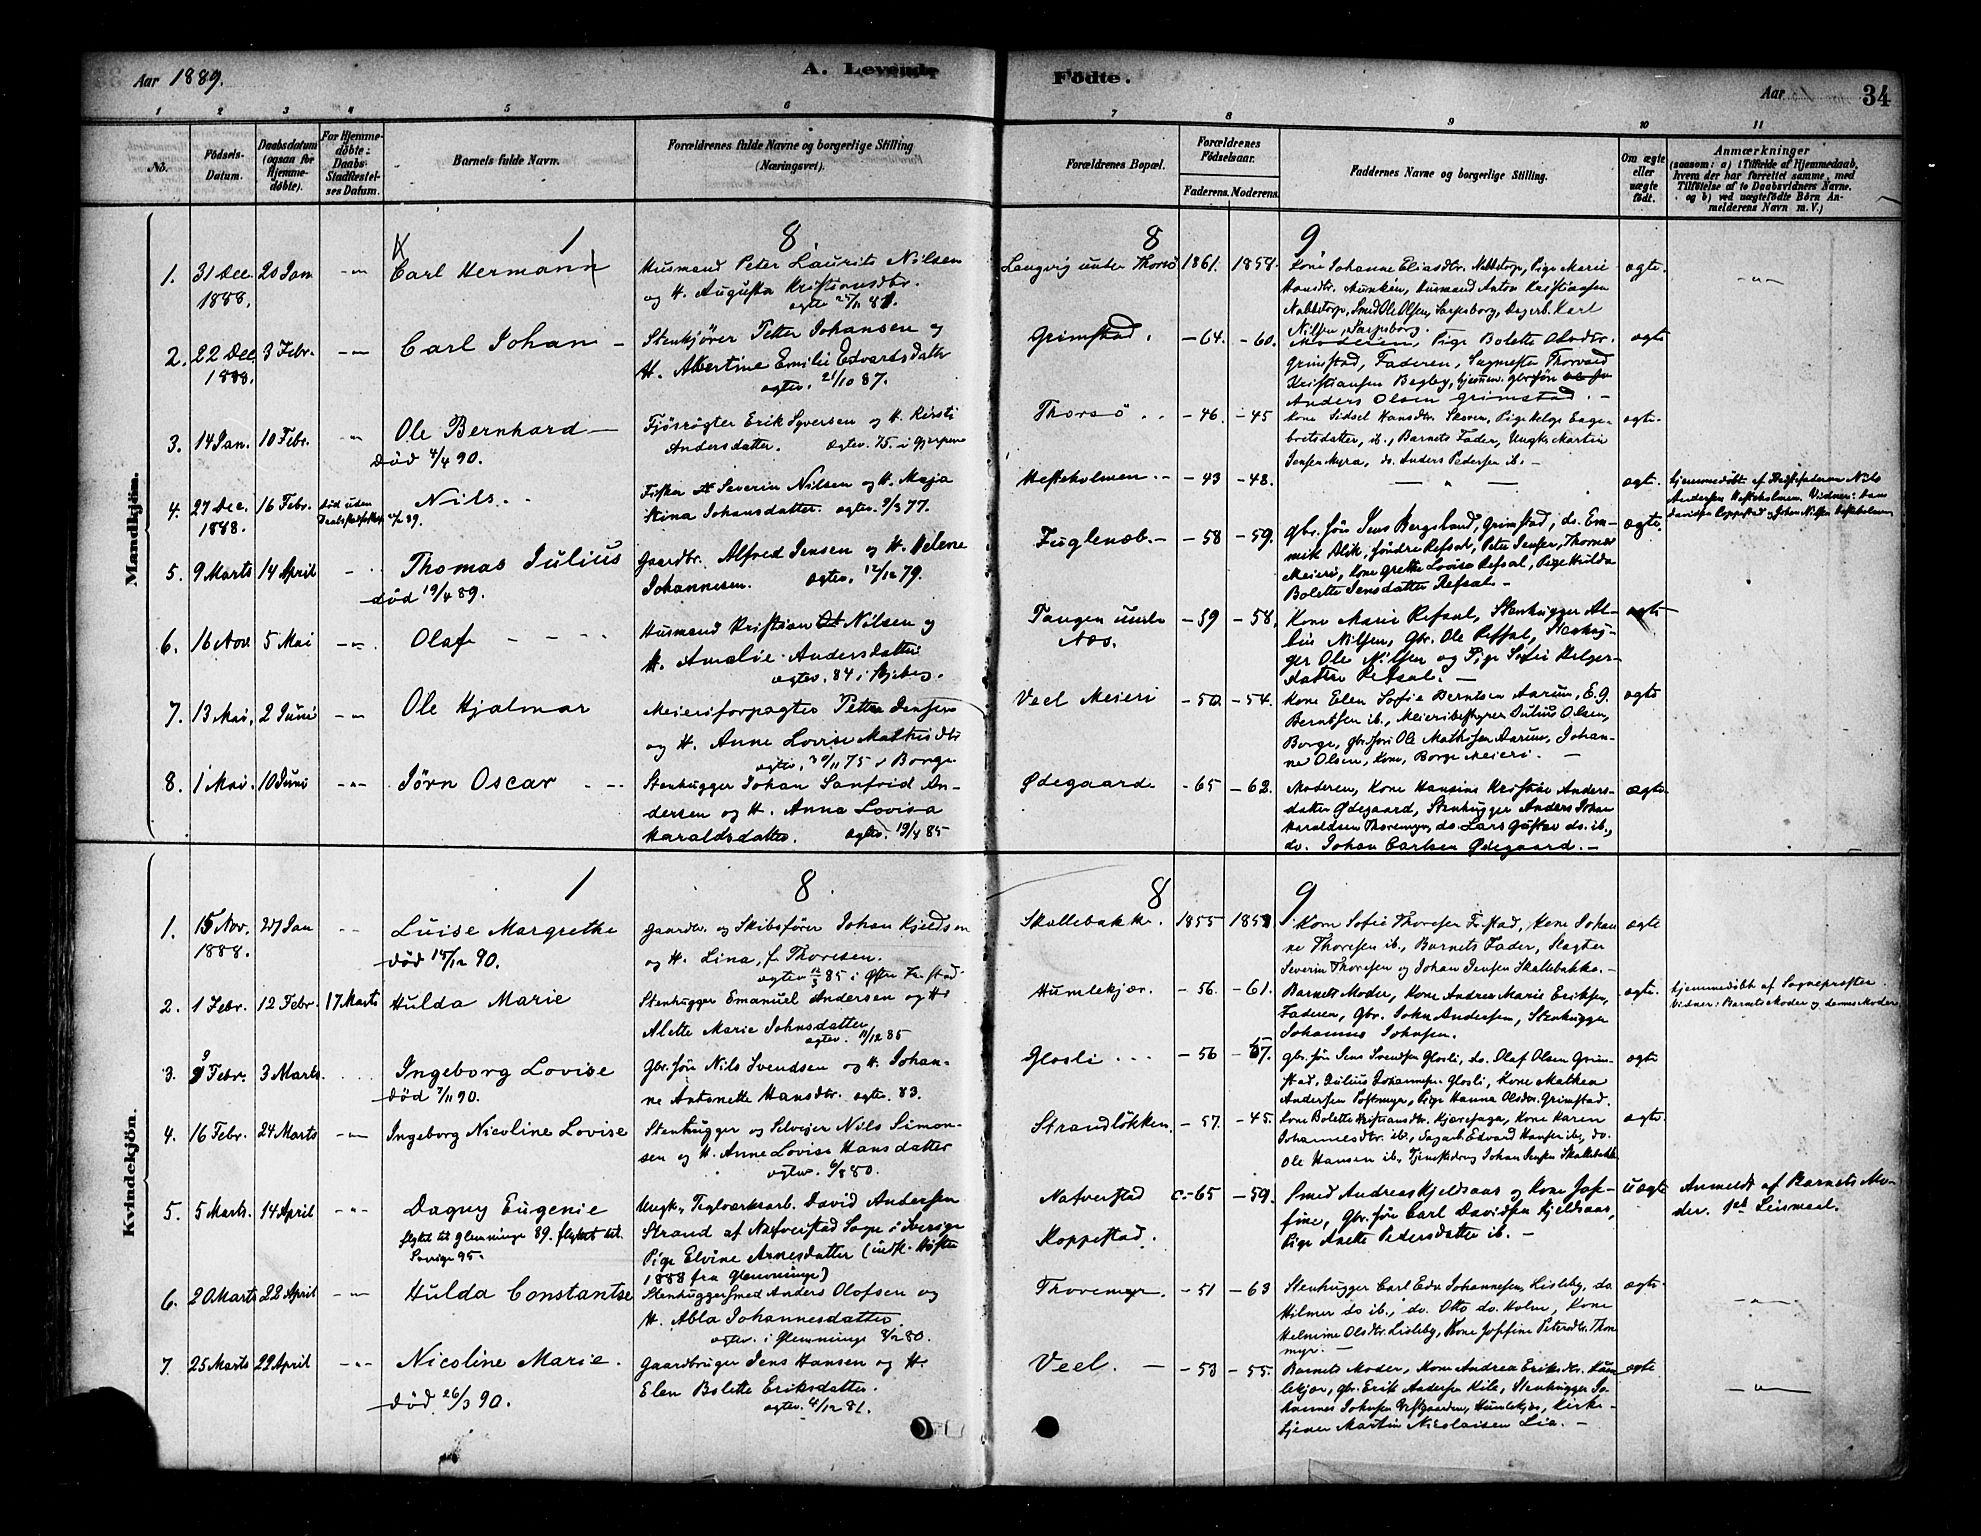 Aar 1889.
A. Levende Fødte.
Aar
34
1 2 3 4 5 6 7 8 9 10 11
No.
Fødsels-Datum.
Daabsdatum (ogsaa for Hjemmedøbte).
For Hjemmedøbte: Daabs-Stadfæstelses Datum.
Barnets fulde Navn.
Forældrenes fulde Navne og borgerlige Stilling (Næringsvei).
Forældrenes Bopæl.
Forældrenes Fødselsaar.
Faderens. Moderens.
Faddernes Navne og borgerlige Stilling.
Om ægte eller uægte født.
Anmærkninger
(saasom: a) i Tilfælde af Hjemmedaab, hvem der har forrettet samme, med Tilføielse af to Daabsvidners Navne. og b) ved uægtefødte Børn Anmelderens Navn m. V.)
Mandkjøn.
1 8 8 9
1. 31 Dec. 1888. 20 Jan Carl Hermann
Husmand Peter Laurits Nilsen
og H. Augusta Kristiansdtr.
Langvig under Thorsø 1861. 1858.
Kone Johanne Eliasdtr. Nabbetorp, Pige Marie
Husmand Anton Kristiansen
Nabbetorp, Smed Ole Olsen, Sarpsborg, Karl
Nilsen, Sarpsborg.
ægte.
2. 22 Dec. 1888. 3 Febr. Carl Johan
Stenkjører Petter Johansen og
H. Albertine Emilie Edvardsdatter
ægtev. 21/10 87.
Grimstad. -64. -60.
Moderen, Pige Bolette Olsdtr.
Grimstad, Faderen, Thorvald
Kristiansen Begby,
Anders Olsen Grimstad.
ægte
3. 14 Jan. 10 Febr. Ole Bernhard
død 4/4 90.
Fjøsrøgter Erik Syversen og H. Kirsti
Andersdatter. ægtev. 75.
Thorsø -46. -45
Kone Sidsel Hansdtr.
Barnets Fader, Ungk. Martin
Jensen Myra, do. Anders Pedersen ib.
ægte.
4. 27 Dec. 1888. 16 Febr. død uden
Nils.
Fisker Severin Nilsen og H. Maja
Stina Johansdatter. ægtev. 9/3 77.
Hesteholmen -43 -48.
ægte.
Hjemmedøbt af
Andersen Hesteholmen. Vidner:
5. 9 Marts 14 April Thomas Julius
død 19/4 89.
Gaardbr. Alfred Jensen og H. Helene
Johannesen. ægtev. 12/12 79.
Fuglenæb. -58 -59.
Gbr.søn Jens Bergsland, Grimstad, do.
Meieri, Kone Grethe Lovise Refsal, Pige Hulda
Bolette Jensdatter Refsal
ægte.
6. 16 Nov. 5 Mai Olaf
Husmand Kristian Nilsen og
H. Amalie Andersdatter
ægtev. 84 i Skjeberg.
Tangen under Næs. -59 -58.
Kone Marie Refsal, Stenhugger
Nilsen, Gbr. Ole Refsal,
Ole Nilsen og Pige Sofie Helgesdatter Refsal.
ægte
7. 13 Mai, 2 Juni Ole Hjalmar
Meieriforpagter Petter Jensen
og H. Anne Lovise Mathisdtr
ægtev. 30/11 75 i Borge
Veel Meieri -50. -54.
Kone Elen Sofie Berntsen Aarum, E. G.
Berntsen ib., Meieribestyrer Julius Olsen,
Borge, Gbr.søn Ole Mathisen Aarum, Johanne Olsen, Kone, Borge Meieri.
ægte
8. 1 Mai. 10 Juni Jørn Oscar
Stenhugger Johan Sanfrid Andersen og H. Anna Lovisa
Haraldsdatter. ægtev. 19/4 85
Ødegaard. -65 -62.
Moderen, Kone Hansine Kristine Andersdatter Ødegaard, Stenhugger Anders Johan
Haraldsen Thoremyr, do. Lars Gustav do. ib.,
do. Johan Carlsen Ødegaard.
ægte
Kvindekjøn.
1 8 8 9
1. 15 Nov. 1888. 27 Jan Luise Margrethe
død 15/12 90.
Gaardbr. og Skibsfører Johan Kjeldsen
og H. Lina, f. Thoresen.
ægtev. 12/3 85 i Østre Fr.stad
Skallebakke. 1855
Kone Sofie Thoresen Fr.stad, Johanne Thoresen ib., Barnets Fader, Slagter
Severin Thoresen og Johan Jensen Skallebakke.
ægte
2. 1 Febr. 12 Febr. 17 Marts Hulda Marie
Stenhugger Emanuel Andersen og H.
Alette Marie Johnsdatter
ægtev. 11/12 85
Humlekjær. -56. -61.
Barnets Moder, Kone Andrea Marie Eriksen,
Faderen, Gbr. John Andersen, Stenhugger
Johannes Johnsen.
ægte.
Hjemmedøbt af Sognepræsten.
Vidner: Barnets Moder og dennes Moder
3. 9 Febr. 3 Marts. Ingeborg Lovise
død 7/11 90.
Gbr.søn Nils Svendsen og H. Johanne Antonette Hansdtr. ægtev. 83.
Glosli -56 -57.
Gbr.søn Jens Svendsen Glosli, do. Olaf Olsen Grimstad, Julius Johannesen Glosli, Kone Mathea
Andersen Postmyr, Pige Hanna Olsdtr. Grimstad.
ægte
4. 16 Febr. 24 Marts Ingeborg Nicoline Lovise
Stenhugger og Selveier Nils Simonsen og H. Anne Lovise Hansdatter
ægtev. 6/8 80.
Strandløkken. -57. -45.
Kone Bolette Kristiansdtr. Kjærefaga, Kone Karen
Johannesdtr. ib., Dagarb. Edvard Hansen ib., do.
Ole Hansen ib., Tjenestedreng Johan Jensen Skallebakke
ægte.
5. 5 Marts. 14 April Dagny Eugenie
flyttet til Glemminge 89. flyttet til
Sverige 95.
Ungk. Teglværksarb. David Andersen
Strand af Nafverstad Sogn i Sverige
Pige Elvine Arnesdatter (indk. Høsten
1888 fra Glemminge)
Nafverstad
Koppestad. c.-65 -59.
Smed Andreas Kjeldsaas og Kone Josefine, Gbr.søn Carl Davidsen Kjeldsaas,
Pige Anette Pedersdatter ib.
uægte
Anmeldt af Barnets Moder. 1st Leiermaal.
6. 20 Marts 22 April Hulda Constantse
Stenhuggersmed Anders Olofsen og
H. Abla Johannesdatter.
ægtev. i Glemminge 8/12 80.
Thoremyr. -51 -63
Stenhugger Carl Edv. Johannesen, Lisleby, do
Hilmer do ib., do. Otto do. Holm, Kone
Helmine Olsdtr. Lisleby, Kone Josefine Petersdtr. Thoremyr.
ægte.
7 25 Marts 22 April Nicoline Marie.
død 26/3 90.
Gaardbruger Jens Hansen og H.
Elen Bolette Eriksdatter.
ægtev. 4/12 81.
Veel. -53 -55.
Barnets Moder, Kone Andrea Eriksdtr. Humlekjær, Gbr. Erik Andersen Kile, Stenhugger Johannes Johnsen Vestgaarden, Humlekjær, Kirketjener Martin Nicolaisen Lie.
ægte